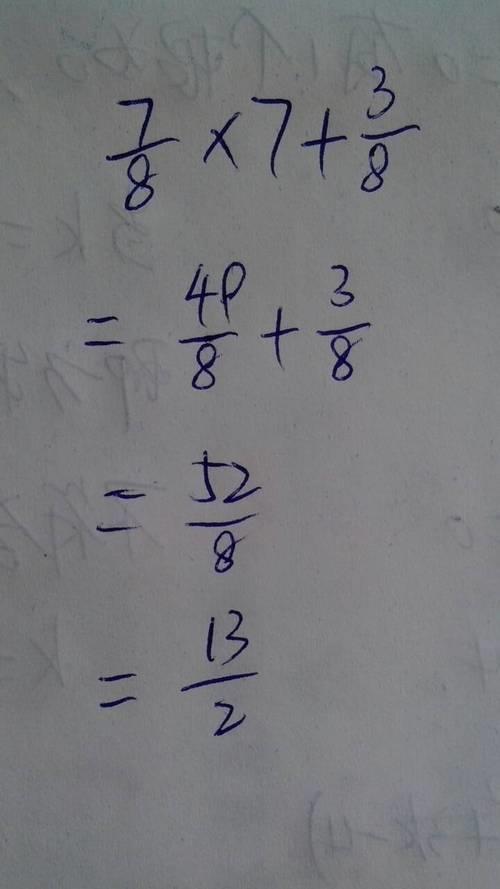 7/8 × 7 + 3/8
= 49/8 + 3/8
= 52/8
= 13/2